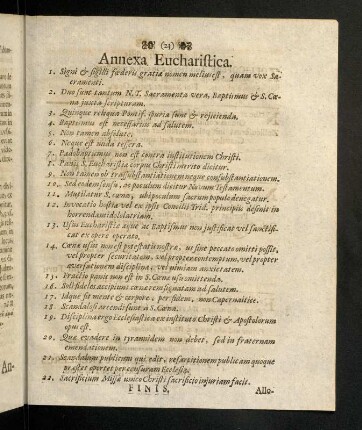 (21)
Annexa Eucharistica.
1. Signi & sigilli fœderis gratiæ nomen melius est, quam vox Sacramenti.
2. Duo sunt tantum N.T. Sacramenta vera, Baptismus & S. Cœna juxta scripturam.
3. Quinque reliqua Pontif. spuria sunt & rejicienda.
4. Baptismus est necessarius ad salutem.
5. Non tamen absolute.
6. Neque est nuda tessera.
7. Pædobaptismus non est contra institutionem Christi.
8. Panis S. Eucharistiæ corpus Christi merito dicitur.
9. Non tamen ob transubstantiationem neque consubstantiationem.
10. Sed eodem sensu, ac poculum dicitur Novum Testamentum.
11. Mutilatur S. cœna, ubi poculum sacrum populo denegatur.
12. Invocatio hostiæ vel ex ipsis Concilii Trid. principiis desinit in
horrendam idololatriam.
13. Usus Eucharistiæ æque ac Baptismus non justificat vel sanctificat ex opere operato.
14. Cœnæ usus non est potestatis nostræ, ut sine peccato omitti possit,
vel propter securitatem, vel propter contemptum, vel propter
aversationem disciplinæ, vel nimiam anxietatem.
15. Fractio panis non est in S. Cœnæ usu omittenda.
16. Soli fideles accipiunt cœnæ rem signatam ad salutem.
17. Idque fit mente & corpore, per fidem, non Capernaitice.
18. Scandalosi arcendi sunt a S. Cœna.
19. Disciplina ergo Ecclesiastica ex instituto Christi & Apostolorum
opus est.
20. Quæ evadere in tyrannidem non debet, sed in fraternam
emendationem.
21. Scandalum publicum qui edit, resartitionem publicam quoque
præstet oportet per censuram Ecclesiæ.
22. Sacrificium Missæ unico Christi sacrificio injuriam facit.
FINIS.
Allo-